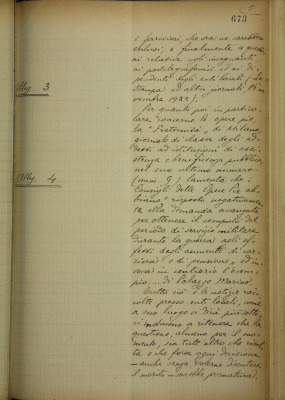 5
673
i ferrovieri, che ora ne sarebbero
esclusi, e finalmente a quelli
ai relativa agli insegnanti,
ai postelegrafonici ed ai di-
pendenti degli enti locali (La
Stampa ed altri giornali 
vembre 1922).
Per quanto poi in partico-
lare concerne le opere pie,
la "Fraternità" di Milano
giornale di classe degli ad-
detti ad istituzioni di assi-
stenza e beneficenza pubblica,
nel suo ultimo numero
 lamenta che i
Consigli delle Opere Pie ab-
biano risposto negativamen-
te alla domanda avanzata
per ottenere il computo del
periodo di servizio militare
durante la guerra agli ef-
fetti degli aumenti di car-
riera e di pensione, ed in-
voca in contrario l'esem-
pio di Palazzo Marino.
Tutto ciò e le notizie rac-
colte presso enti locali, come
a suo luogo si dirà più sotto,
ci inducono a ritenere che la
questione, almeno per il mo-
mento, sia tutt'altro che risol-
ta e che forse ogni decisione
- anche senza volerne discutere
il merito - sarebbe prematura.
Alleg. 3
Alleg. 4